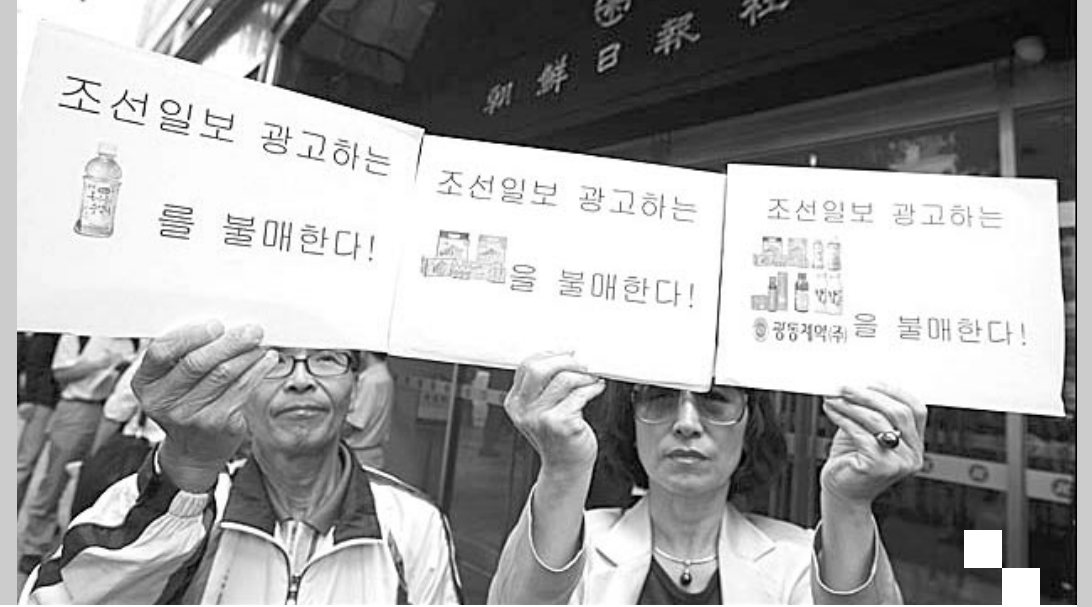 朝鮮日報社
조선일보 광고하는
를 불매한다!
조선일보 광고하는
을 불매한다!
조선일보 광고하는
광동제약(주) 을 불매한다!